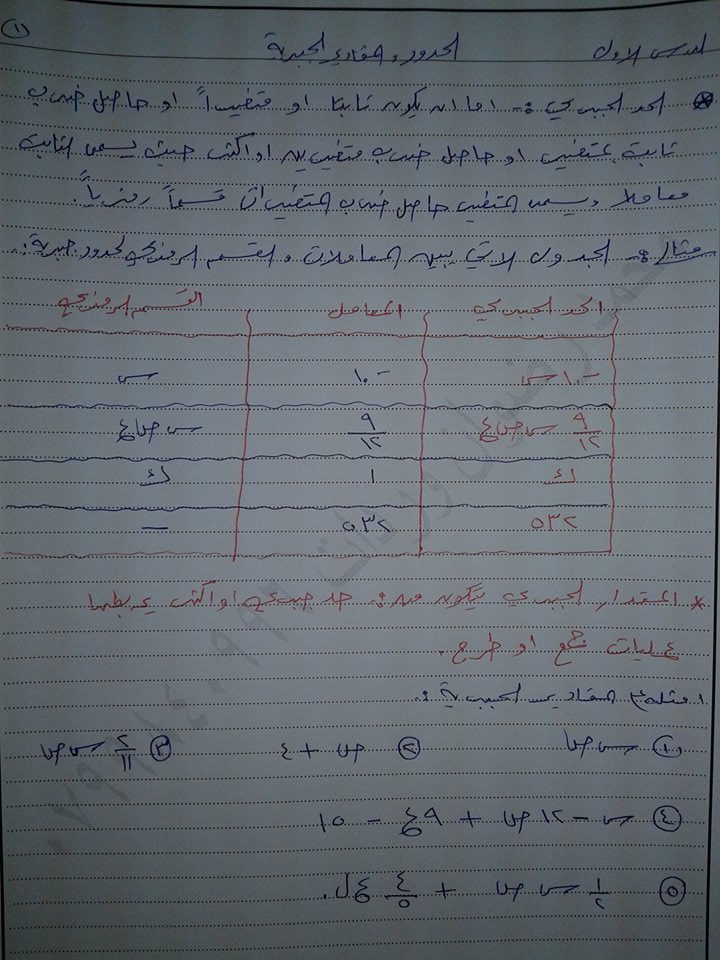 (١)
الدرس الاول الحدود والمقادير الجبرية
الحد الجبري :- اما ان يكون ثابتا او متغيراً او حاصل ضرب
ثابت بمتغير او حاصل ضرب متغيرين او اكثر حيث يسمى الثابت
معاملا ويسمى المتغير حاصل ضرب المتغيرات قسماً رمزياً.
مثال :- الجدول الاتي يبين المعاملات والقسم الرمزي لحدود جبرية :.
الحد الجبري المعامل القسم الرمزي
-١٠ س -١٠ س
٩/١٢ س ص ع ٩/١٢ س ص ع
ك ١ ك
٥٣٢ ٥٣٢ —
* المقدار الجبري يتكون من : حد جبري او اكثر يربطها
عمليات جمع او طرح .
امثلة ع المقادير الجبرية :
(١) س ص (٢) ص + ٤ (٣) ٢/١١ س ص
(٤) س - ١٢ ص + ٩ ع - ١٥
(٥) ١/٢ س ص + ٤/٥ ع ل .